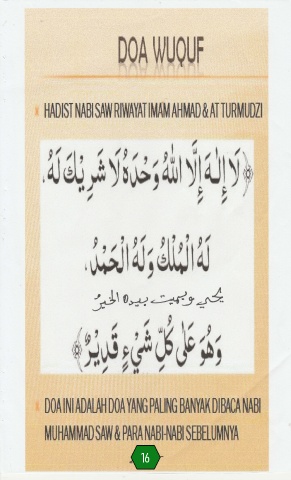 DOA WUQUF
HADIST NABI SAW RIWAYAT IMAM AHMAD & AT TURMUDZI
﴿لَا إِلٰهَ إِلَّا اللهُ وَحْدَهُ لَا شَرِيْكَ لَهُ،
لَهُ الْمُلْكُ وَلَهُ الْحَمْدُ،
يحيي ويميت بيده الخير
وَهُوَ عَلَى كُلِّ شَيْءٍ قَدِيْرٌ﴾
DOA INI ADALAH DOA YANG PALING BANYAK DIBACA NABI
MUHAMMAD SAW & PARA NABI-NABI SEBELUMNYA
16